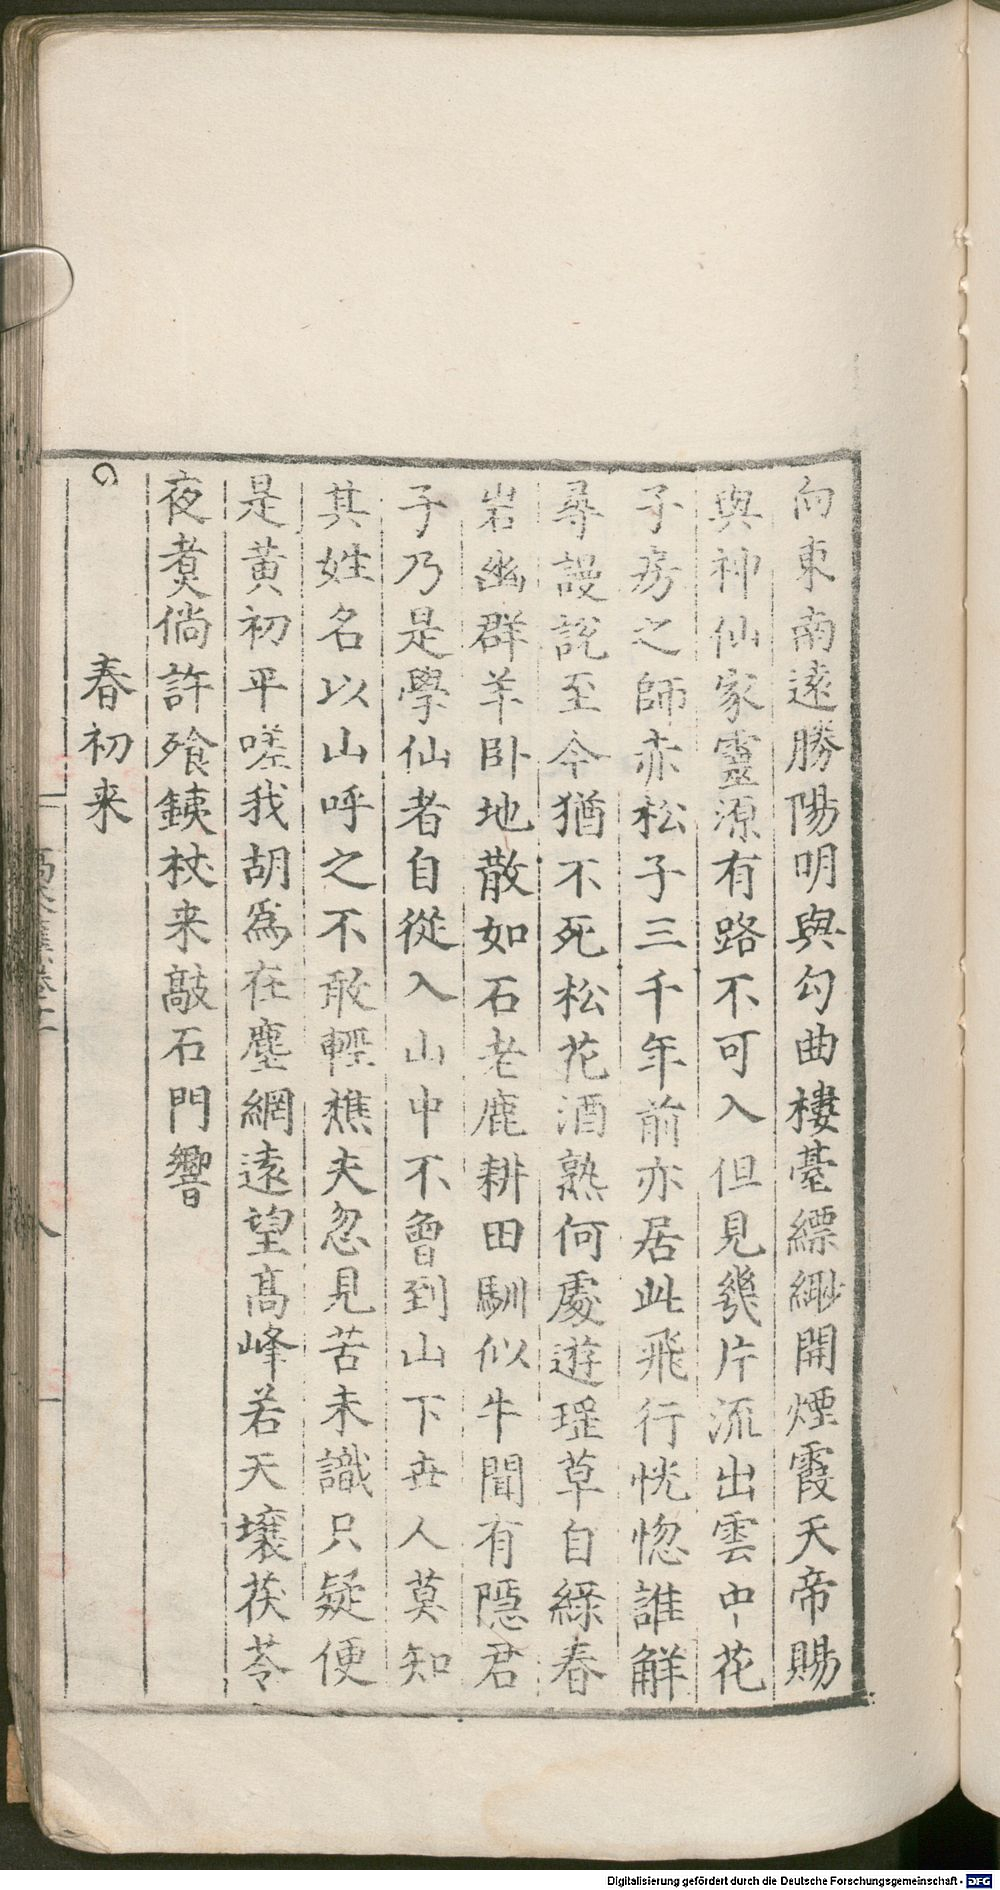 向東南遠勝陽明與勾曲樓臺縹緲開煙霞天帝賜
與神仙家靈源有路不可入但見幾片流出雲中花
子房之師赤松子三千年前亦居此飛行恍惚誰解
尋謾説至今猶不死松花酒熟何處遊瑶草自緑春
岩幽群羊卧地散如石老鹿耕田馴似牛聞有隱君
子乃是學仙者自從入山中不曾到山下世人莫知
其姓名以山呼之不敢輕樵夫忽見苦未識只疑便
是黄初平嗟我胡為在塵網遠望髙峰若天壤茯苓
夜煑倘許飱銕杖来敲石門響
春初来
八
Digitalisierung gefördert durch die Deutsche Forschungsgemeinschaft - DFG